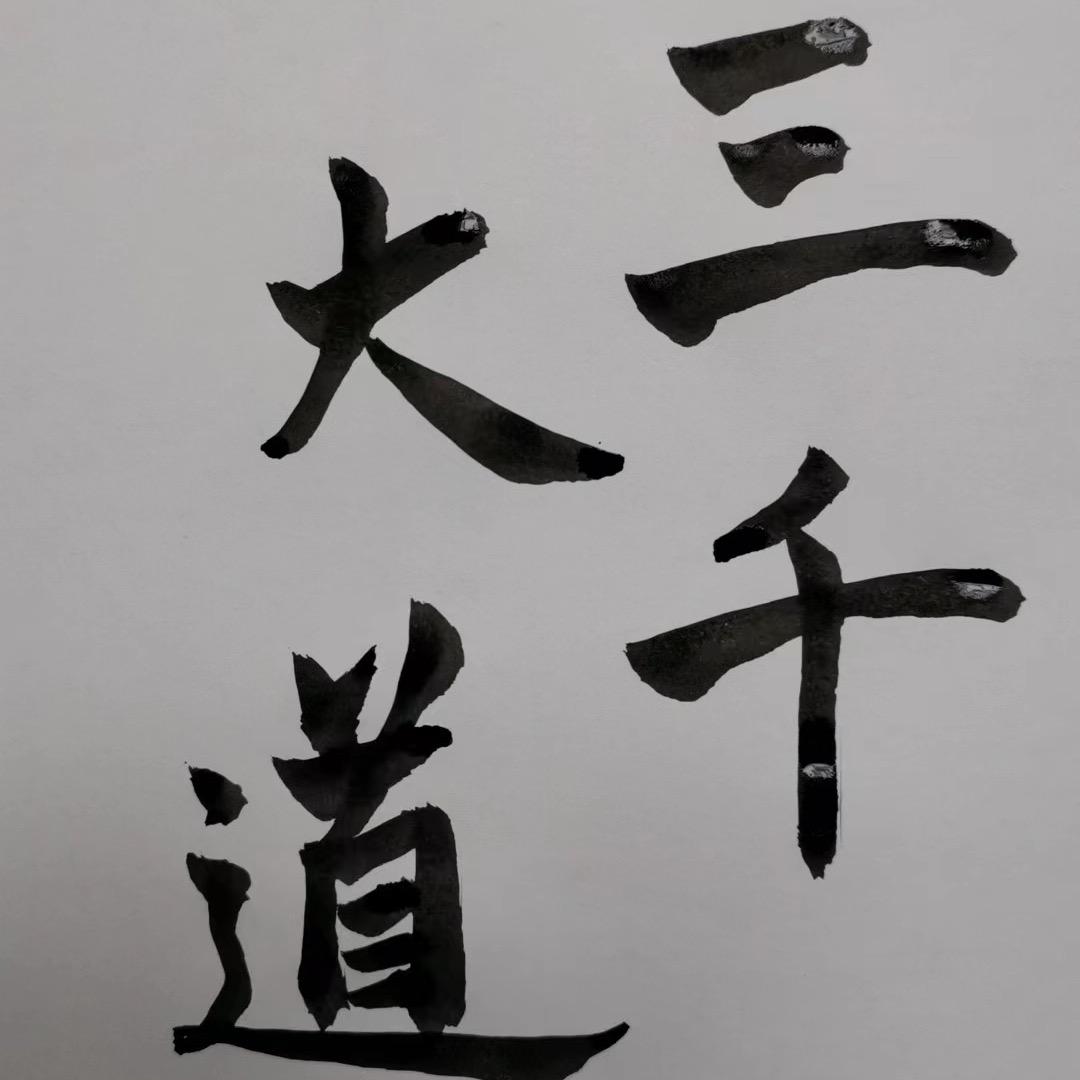 三千
大道